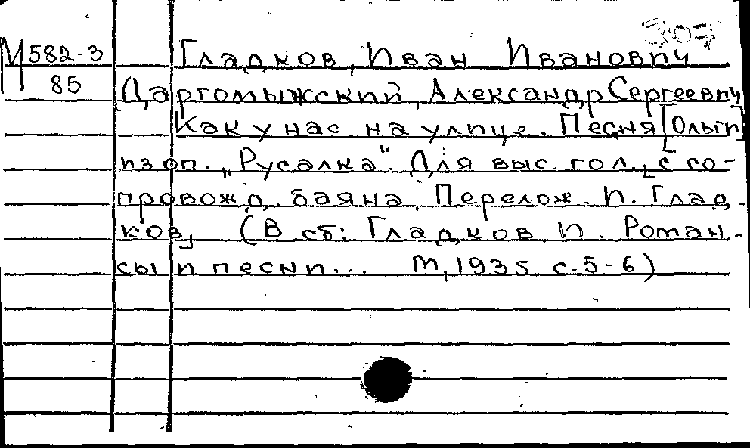 307
М582-3 Гладков, Иван Иванович
85 Даргомыжский, Александр Сергеевич
Как у нас на улице. Песня [Ольги]
из оп. „Русалка“. Для выс. гол. [с со-
провожд. баяна. Перелож. И. Глад-
ков] (В сб: Гладков И. Роман-
сы и песни... М, 1935 с.5-6)